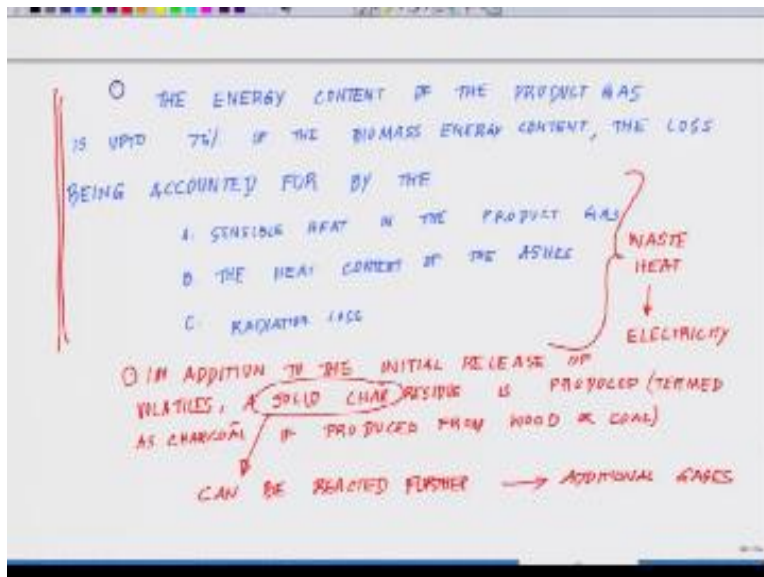 THE ENERGY CONTENT OF THE PRODUCT GAS
IS UPTO 75% OF THE BIOMASS ENERGY CONTENT, THE LOSS
BEING ACCOUNTED FOR BY THE
A. SENSIBLE HEAT IN THE PRODUCT GAS
B. THE HEAT CONTENT OF THE ASHES
C. RADIATION LOSS
WASTE
HEAT
↓
ELECTRICITY
IN ADDITION TO THE INITIAL RELEASE OF
VOLATILES, A SOLID CHAR RESIDUE IS PRODUCED (TERMED
AS CHARCOAL IF PRODUCED FROM WOOD OR COAL)
CAN BE REACTED FURTHER → ADDITIONAL GASES